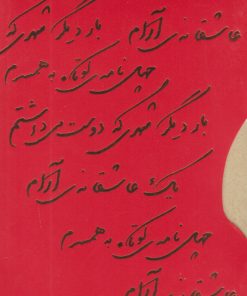 عاشقانه‌ی آرام    بار دیگر شهری که
چهل نامه‌ی کوتاه به همسرم
بار دیگر شهری که دوست می‌داشتم
یک عاشقانه‌ی آرام
چهل نامه‌ی کوتاه به همسرم
عاشقانه‌ی آرام